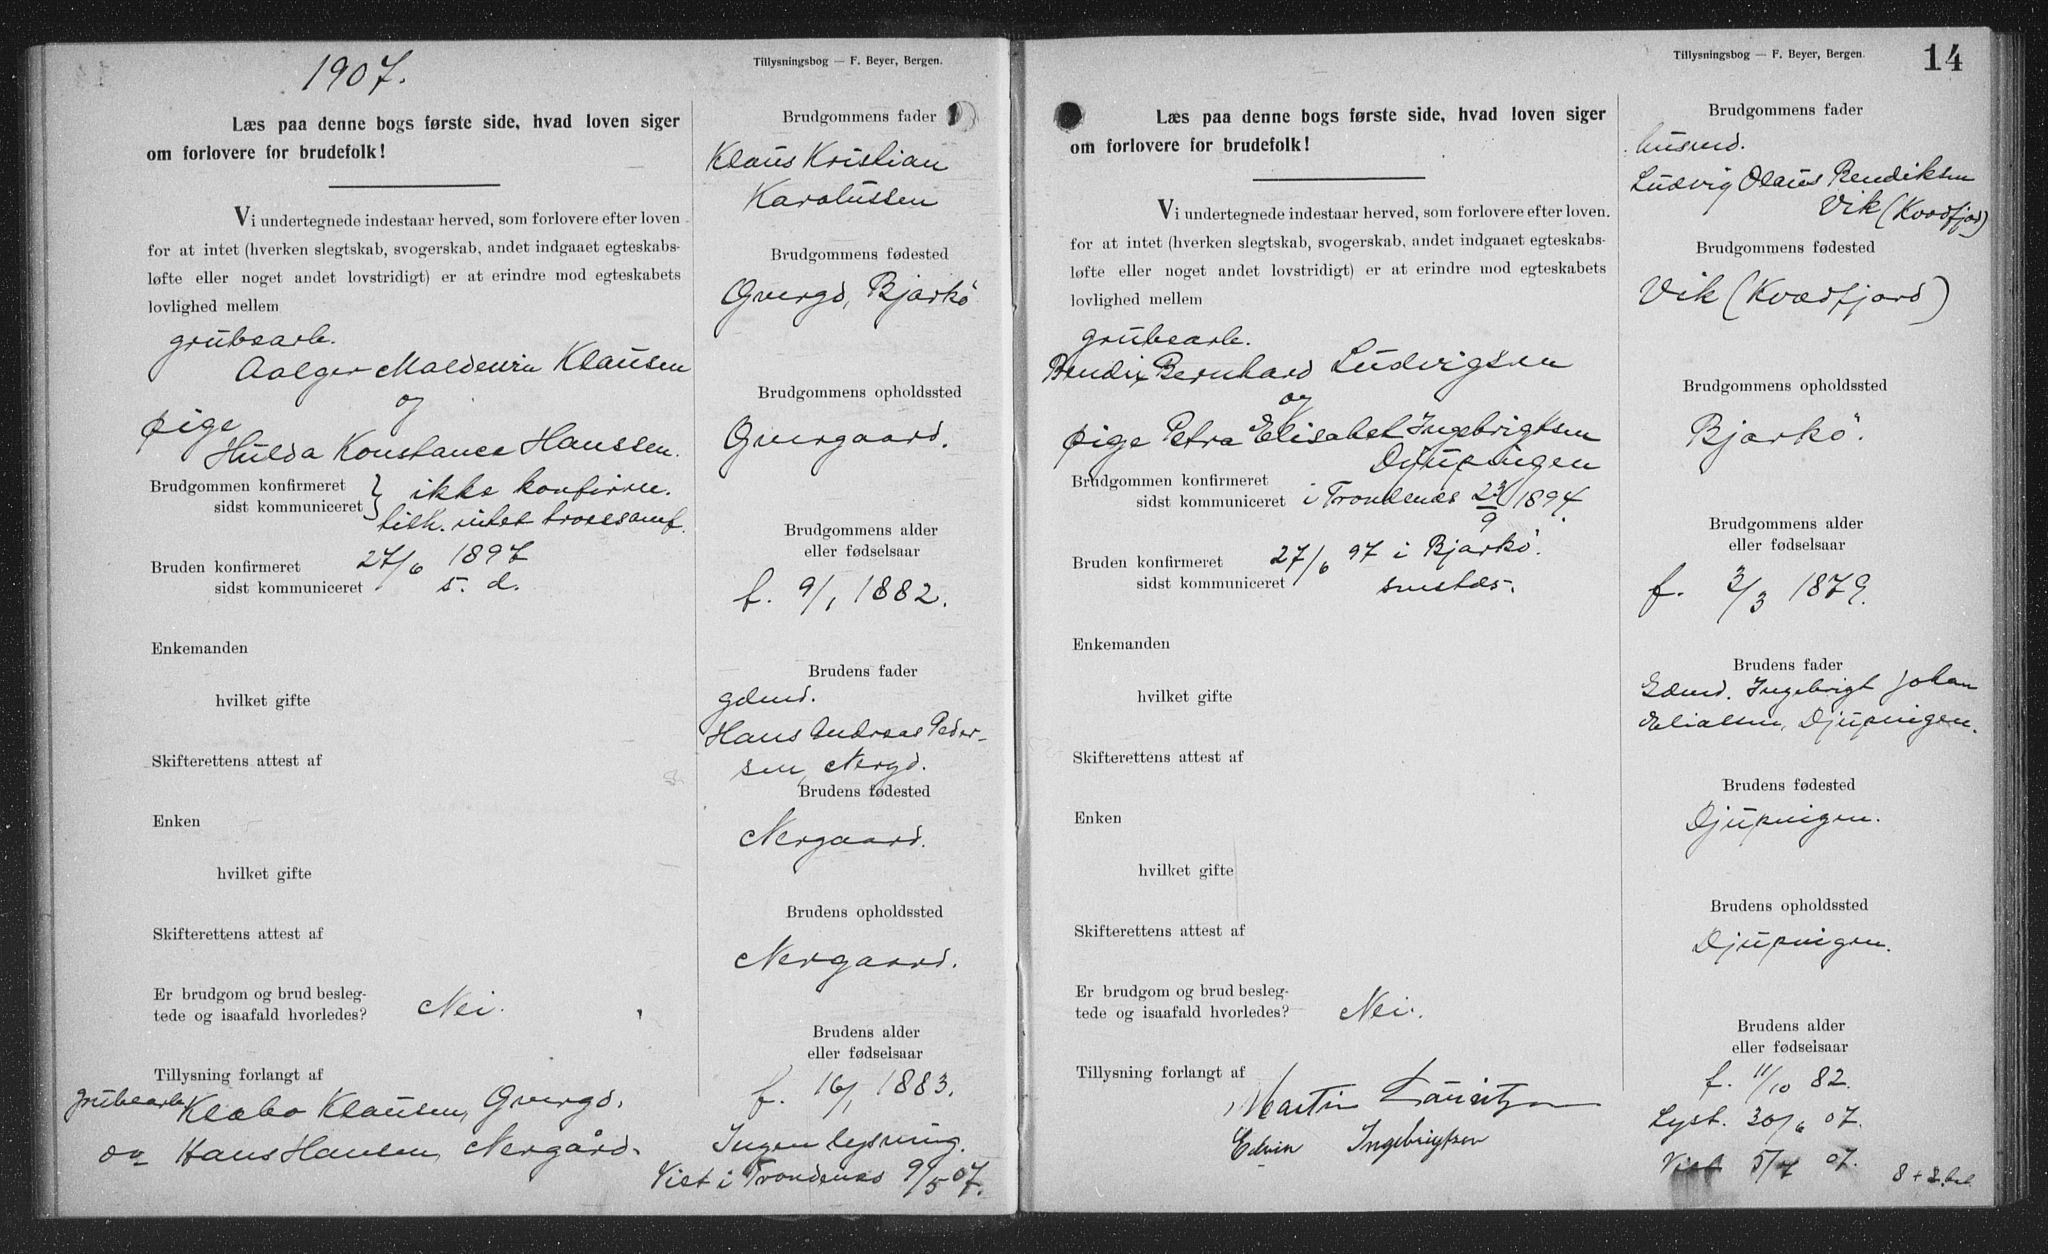 1907.
Tillysningsbog — F. Beyer, Bergen.
Læs paa denne bogs første side, hvad loven siger
om forlovere for brudefolk!
Vi undertegnede indestaar herved, som forlovere efter loven
for at intet (hverken slegtskab, svogerskab, andet indgaaet egteskabs-
løfte eller noget andet lovstridigt) er at erindre mod egteskabets
lovlighed mellem
grubearb.
Aalger Maldenin Klausen
og
pige
Hulda Konstance Hanssen.
Brudgommen konfirmeret
sidst kommuniceret
ikke konfirm.
tilh. intet trossamf.
Bruden konfirmeret 27/6 1897
sidst kommuniceret s. d.
Enkemanden
hvilket gifte
Skifterettens attest af
Enken
hvilket gifte
Skifterettens attest af
Er brudgom og brud besleg-
tede og isaafald hvorledes? Nei.
Tillysning forlangt af
grubearb. Klæbo Klausen, Øvergd.
og Hans Hansen, Nergård.
Brudgommens fader
Klaus Kristian
Karolussen
Brudgommens fødested
Øvergd, Bjarkö
Brudgommens opholdssted
Øvergaard.
Brudgommens alder
eller fødselsaar
f. 9/1 1882.
Brudens fader
gdmd.
Hans Andreas Peder-
sen, Nergd.
Brudens fødested
Nergaard.
Brudens opholdssted
Nergaard.
Brudens alder
eller fødselsaar
f. 16/1 1883.
Ingen lysning.
Viet i Trondenes 9/5 07.
Tillysningsbog — F. Beyer, Bergen.
14
Læs paa denne bogs første side, hvad loven siger
om forlovere for brudefolk!
Vi undertegnede indestaar herved, som forlovere efter loven.
for at intet (hverken slegtskab, svogerskab, andet indgaaet egteskabs-
løfte eller noget andet lovstridigt) er at erindre mod egteskabets
lovlighed mellem
grubearb.
Bendix Bernhard Ludvigsen
og
pige Petra Elisabet Ingebrigtsen
Djupvingen
Brudgommen konfirmeret
sidst kommuniceret i Trondenes 23/9 1894.
Bruden konfirmeret 27/6 97 i Bjarkö.
sidst kommuniceret smstds.
Enkemanden
hvilket gifte
Skifterettens attest af
Enken
hvilket gifte
Skifterettens attest af
Er brudgom og brud besleg-
tede og isaafald hvorledes? Nei.
Tillysning forlangt af
Martin Lauritzen
Edvin Ingebrigtsen
Brudgommens fader
husmd.
Ludvig Olaus Bendiksen
Vik (Kvædfjord)
Brudgommens fødested
Vik (Kvædfjord)
Brudgommens opholdssted
Bjarkö.
Brudgommens alder
eller fødselsaar
f. 2/3 1879.
Brudens fader
Gdmd. Ingebrigt Johan
Eliassen, Djupvingen.
Brudens fødested
Djupvingen.
Brudens opholdssted
Djupvingen.
Brudens alder
eller fødselsaar
f. 11/10 82.
Lyst. 30/6 07.
Viet 5/7 07.